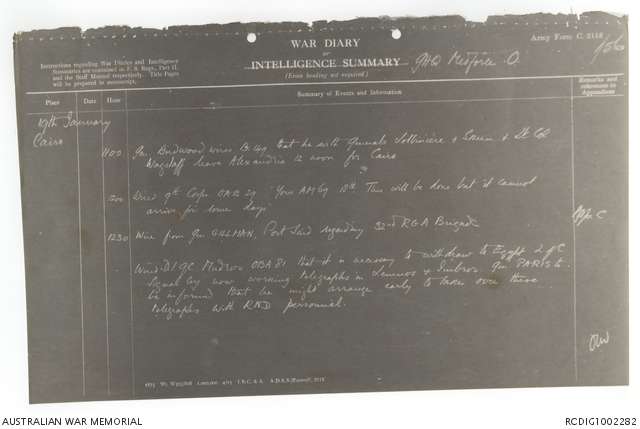 Army Form C. 2118
WAR DIARY
OR
INTELLIGENCE SUMMARY
(Erase heading not required.)
GHQ Medforce O.
156
Instructions regarding War Diaries and Intelligence
Summaries are contained in F. S. Regs., Part II.
and the Staff Manual respectively. Title Pages
will be prepared in manuscript.
Place Date Hour Summary of Events and Information Remarks and references to Appendices
19th January
Cairo
1100 Gen Birdwood wires that he with Generals & & Lt Col
Wagstaff leave Alexandria 12 noon for Cairo
1200 9th Corps "Your 18th. This will be done but it cannot
arrive for some days.
1230 Wire from Gen GILLMAN, Port Said regarding 32nd RGA Brigade App C
Wired DIGC Mudros OBA 81 that it is necessary to withdraw to Egypt L of C
Signal Coy now working telegraphs in Lemnos & Imbros. Gen PARIS to
be informed that he might arrange early to take over these
telegraphs with RND personnel.
AUSTRALIAN WAR MEMORIAL
RCDIG1002282